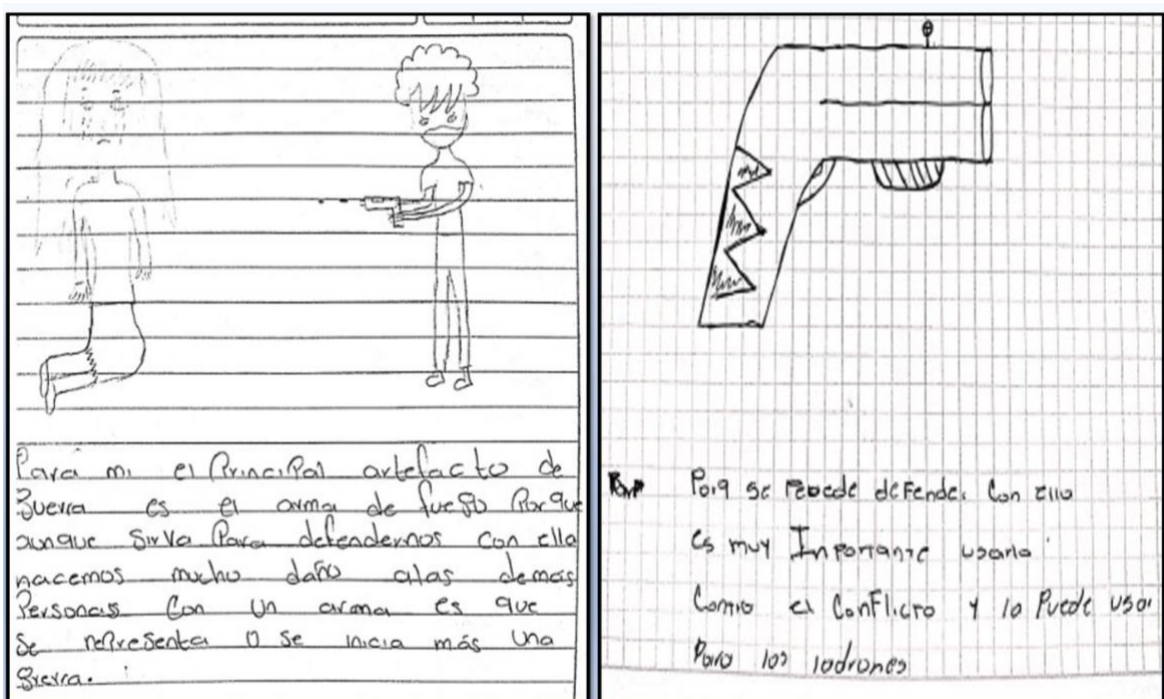 Para mi el Principal artefacto de
Guerra es el arma de fuego Porque
aunque Sirva Para defendernos con ella
hacemos mucho daño alas demas
Personas Con un arma es que
Se representa o se inicia más una
Guerra.
Porq se puede defender Con ello
es muy Inportante usarla
Contra el Conflicto y lo Puede usar
Para los ladrones